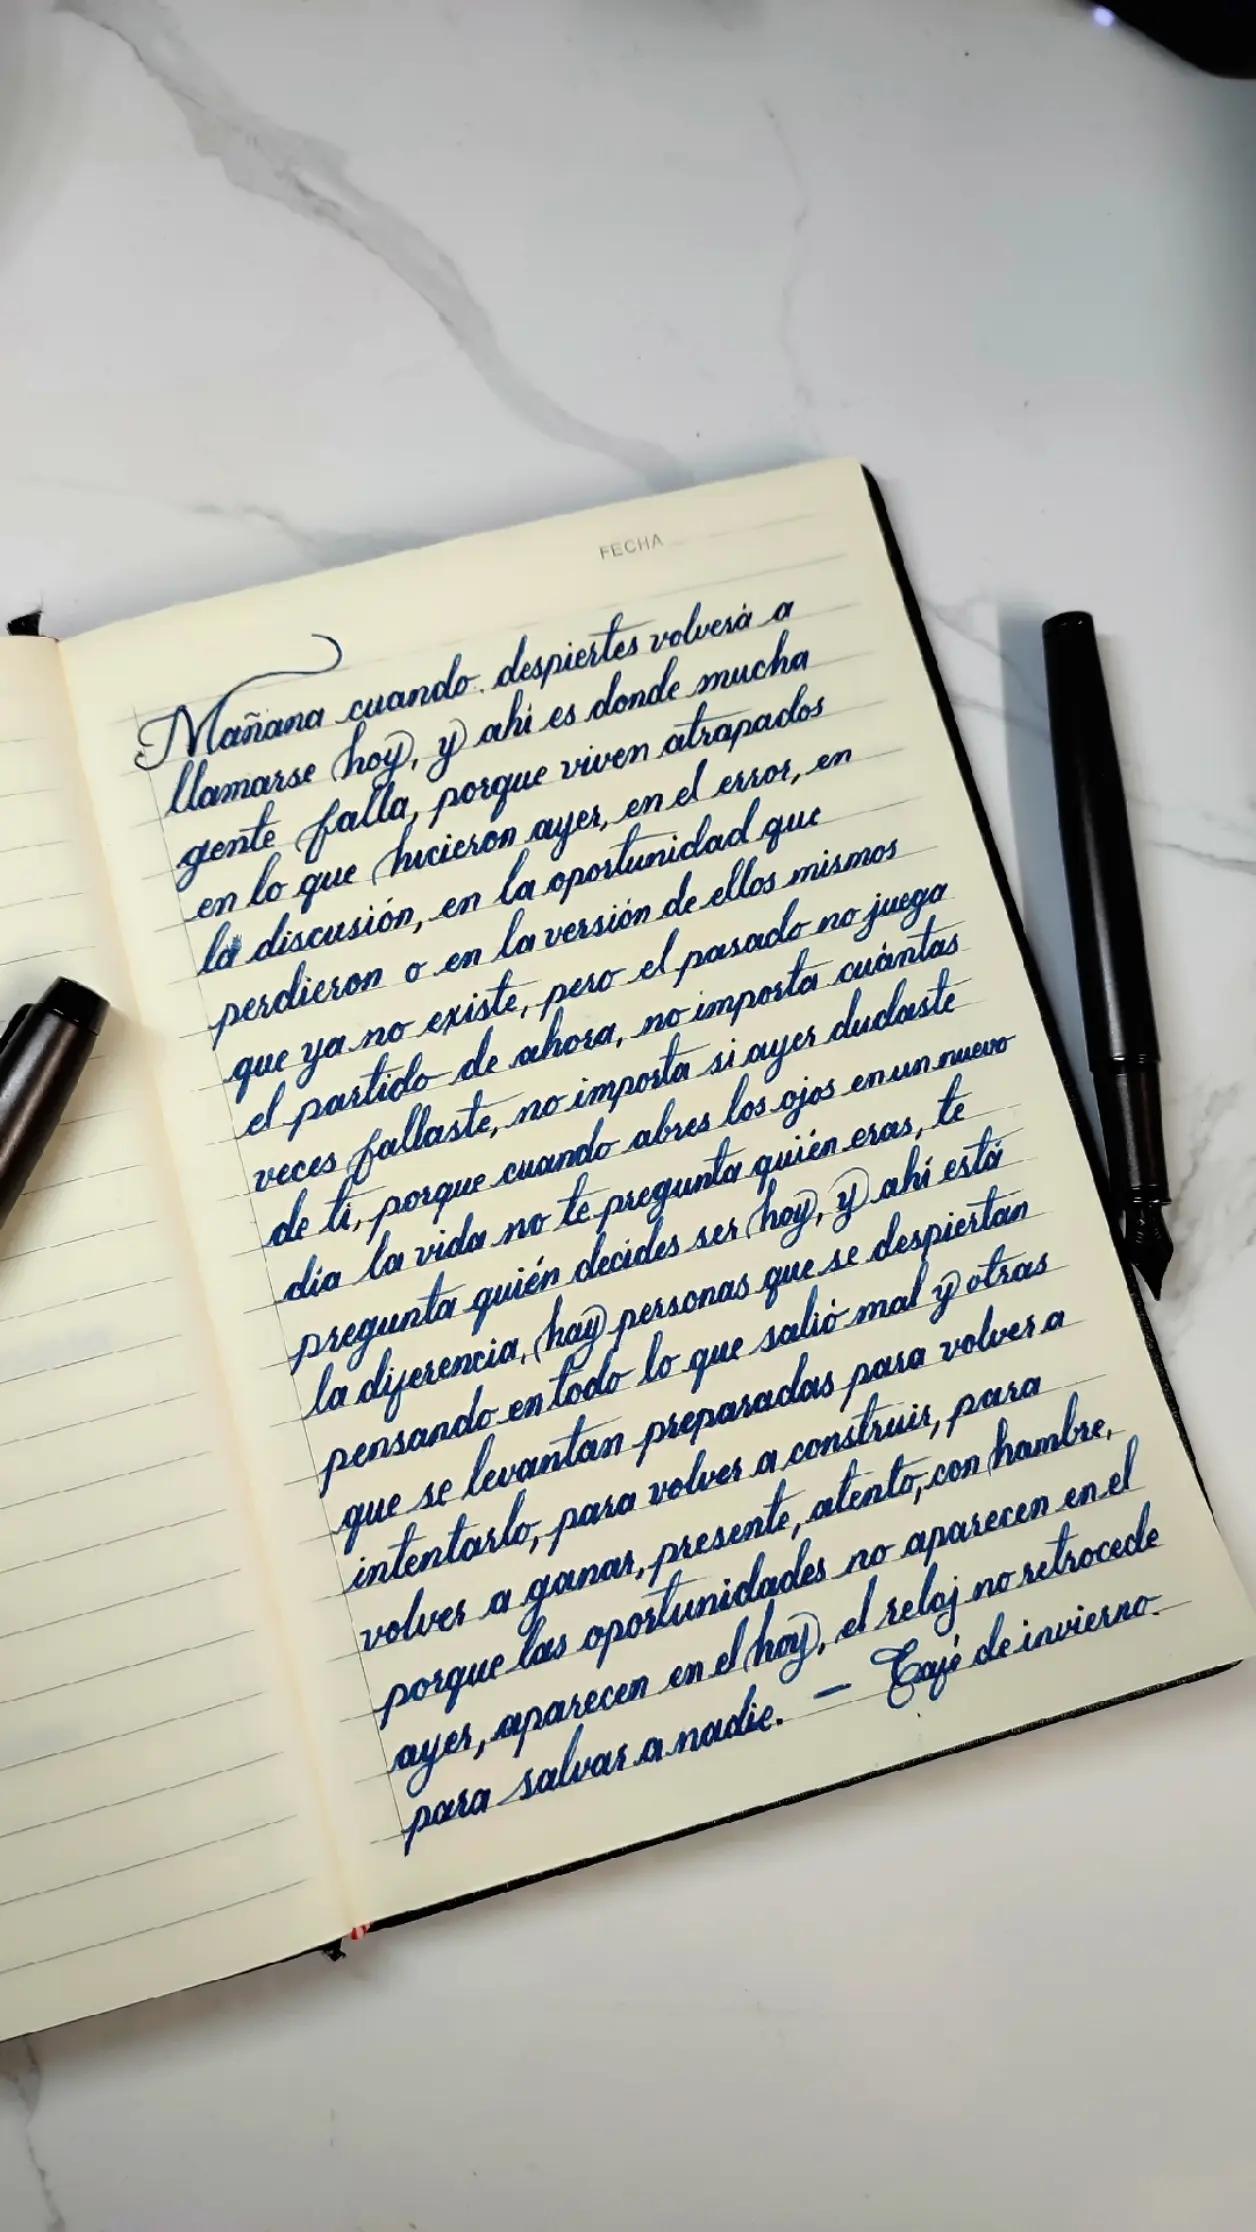 FECHA
Mañana cuando despiertes volverá a
llamarse hoy, y ahí es donde mucha
gente falla, porque viven atrapados
en lo que hicieron ayer, en el error, en
la discusión, en la oportunidad que
perdieron o en la versión de ellos mismos
que ya no existe, pero el pasado no juega
el partido de ahora, no importa cuántas
veces fallaste, no importa si ayer dudaste
de ti, porque cuando abres los ojos en un nuevo
día la vida no te pregunta quién eras, te
pregunta quién decides ser hoy, y ahí está
la diferencia, hay personas que se despiertan
pensando en todo lo que salió mal y otras
que se levantan preparadas para volver a
intentarlo, para volver a construir, para
volver a ganar, presente, atento, con hambre,
porque las oportunidades no aparecen en el
ayer, aparecen en el hoy, el reloj no retrocede
para salvar a nadie. — Café de invierno.